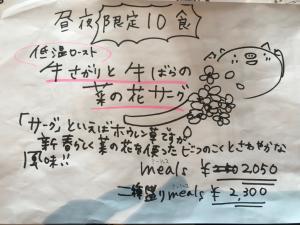 昼夜限定10食
低温ロースト
牛さがりと牛ばらの
菜の花サーグ
「サーグ」といえばホウレン草ですが
新春らしく菜の花を使った
風味!!
meals ¥2050
二種盛りmeals ¥2,300